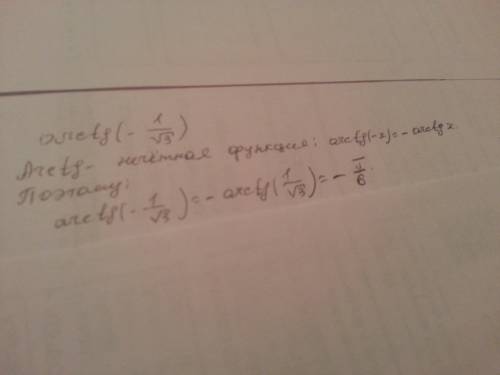 arctg(- 1/√3)
Arctg - нечётная функция: arctg(-x) = - arctg x.
Поэтому:
arctg(- 1/√3) = - arctg(1/√3) = - π/6.